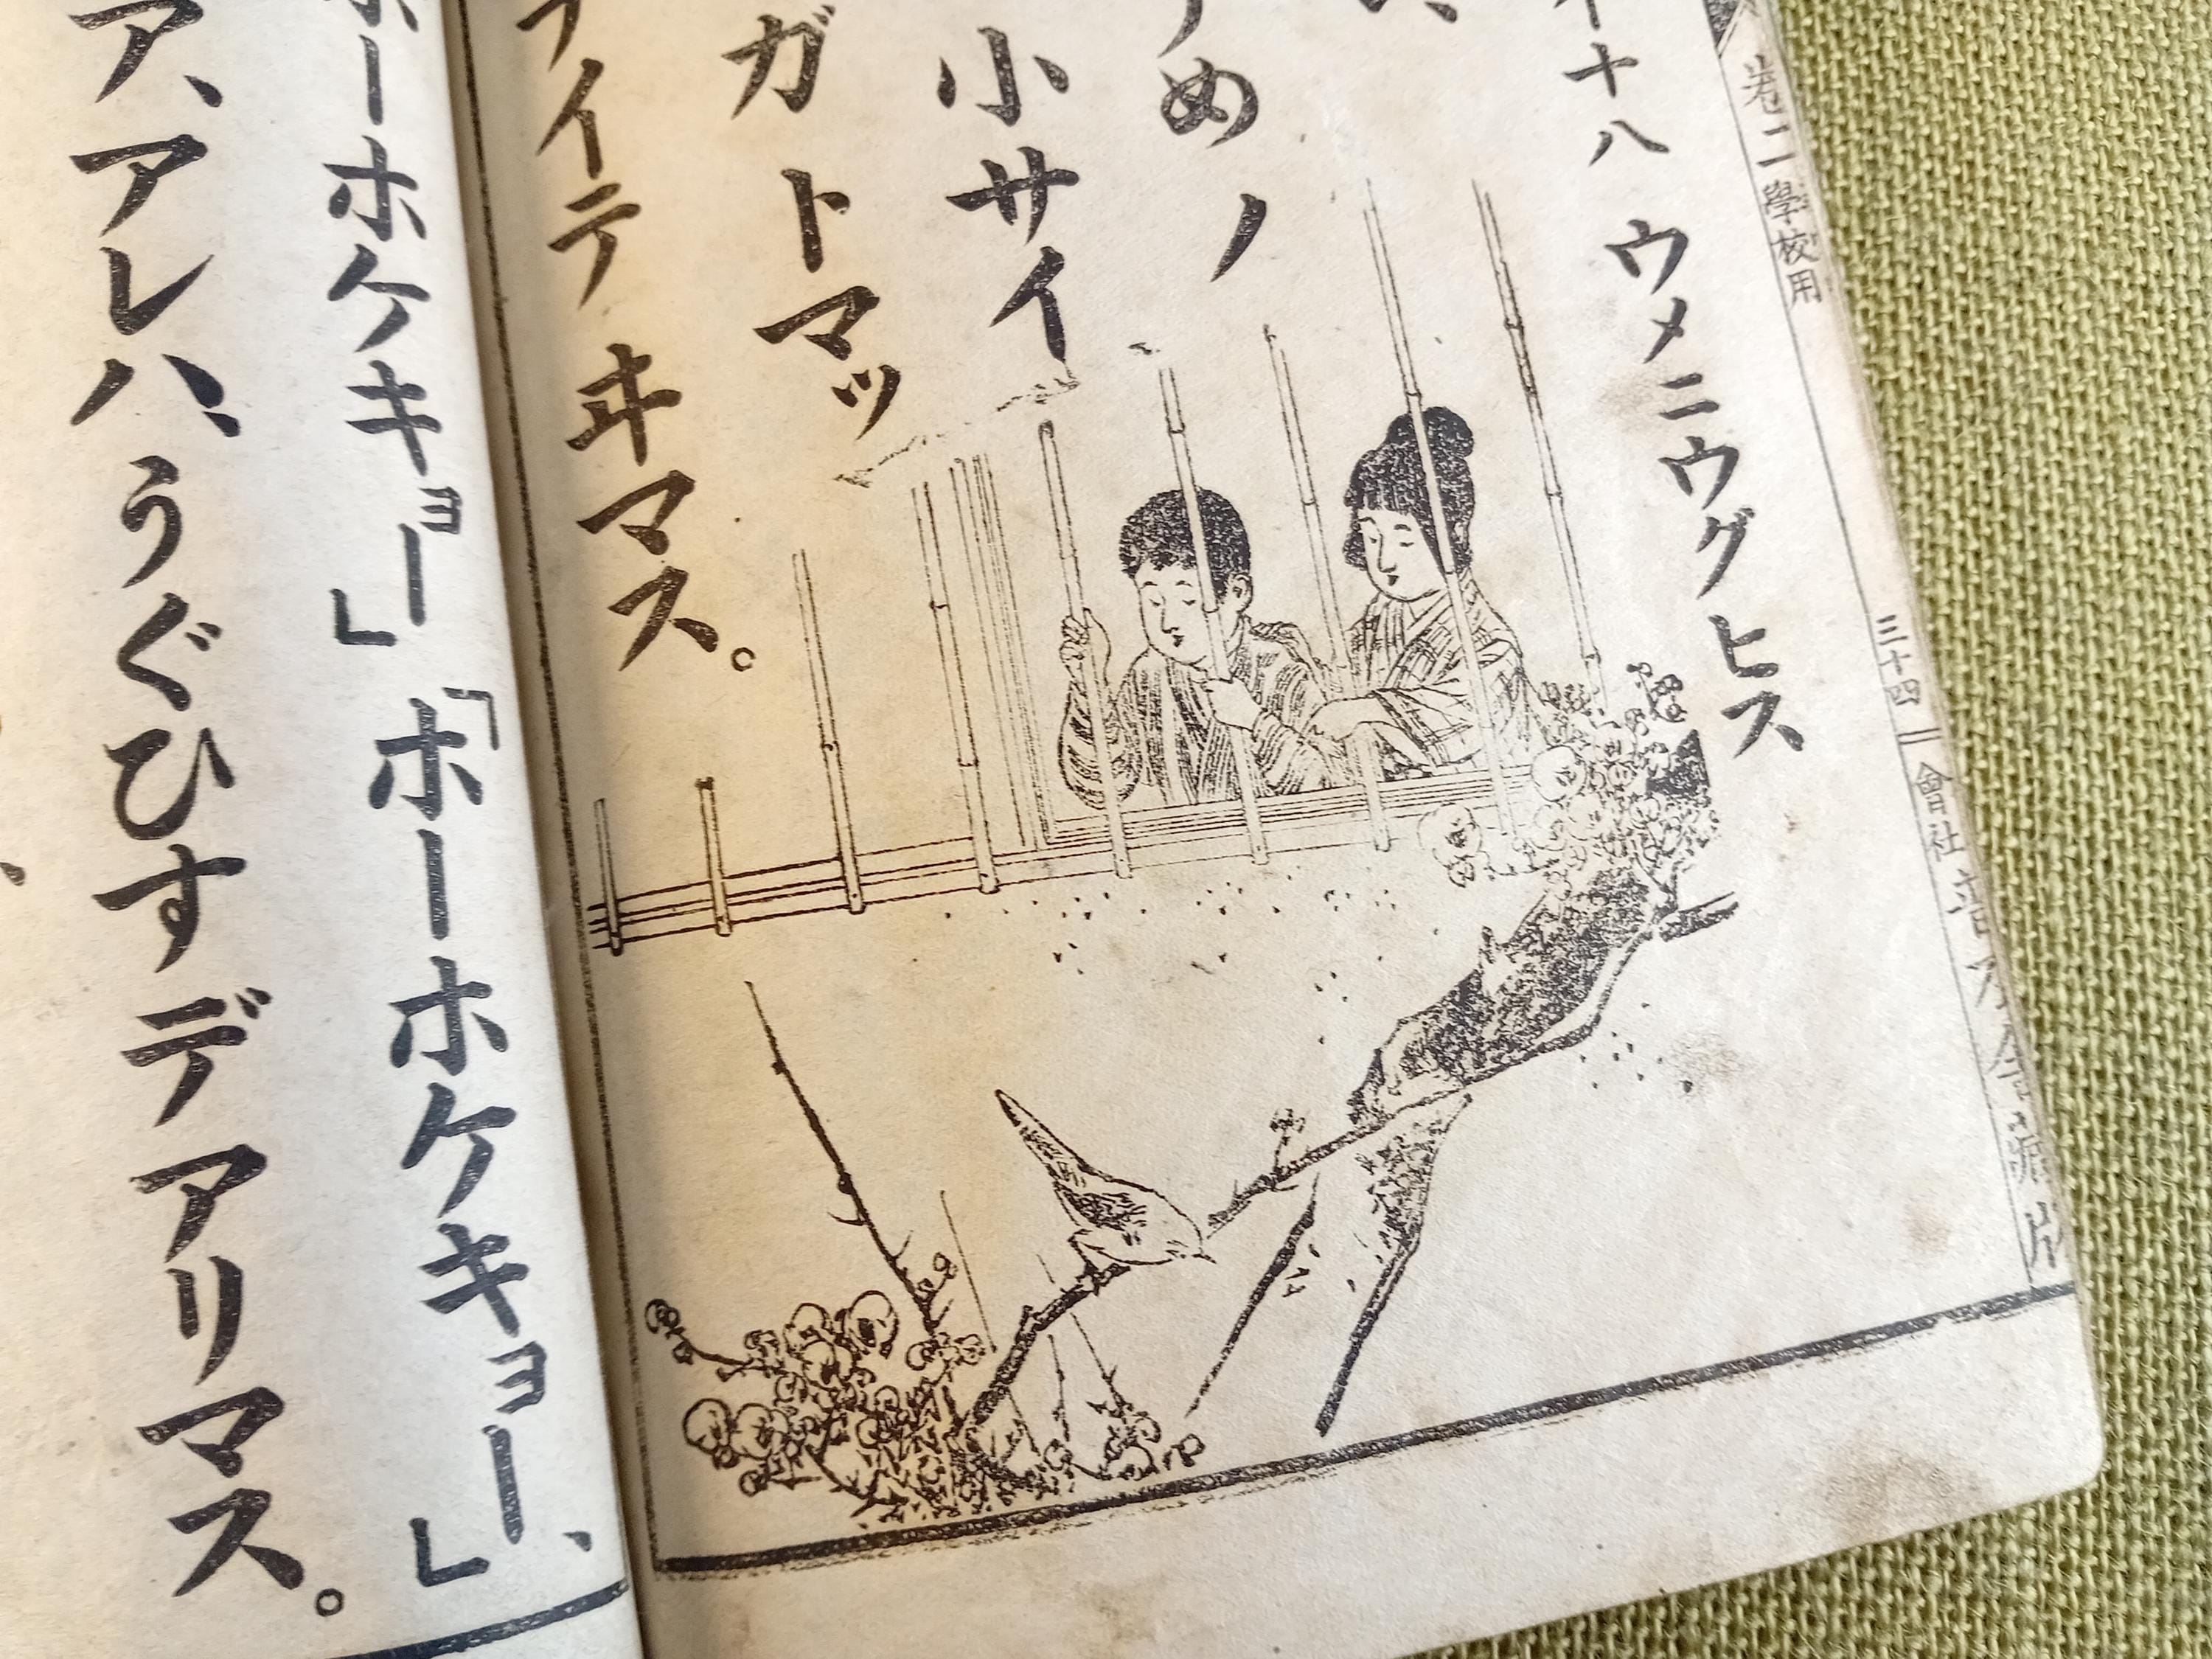 卷二 學校用
三十四
會社
十八 ウメニウグヒス
めノ
小サイ
ガ トマッ
イテ ヰマス。
ホーホケキョー」「ホーホケキョー」、
ア、アレハ、うぐひすデアリマス。